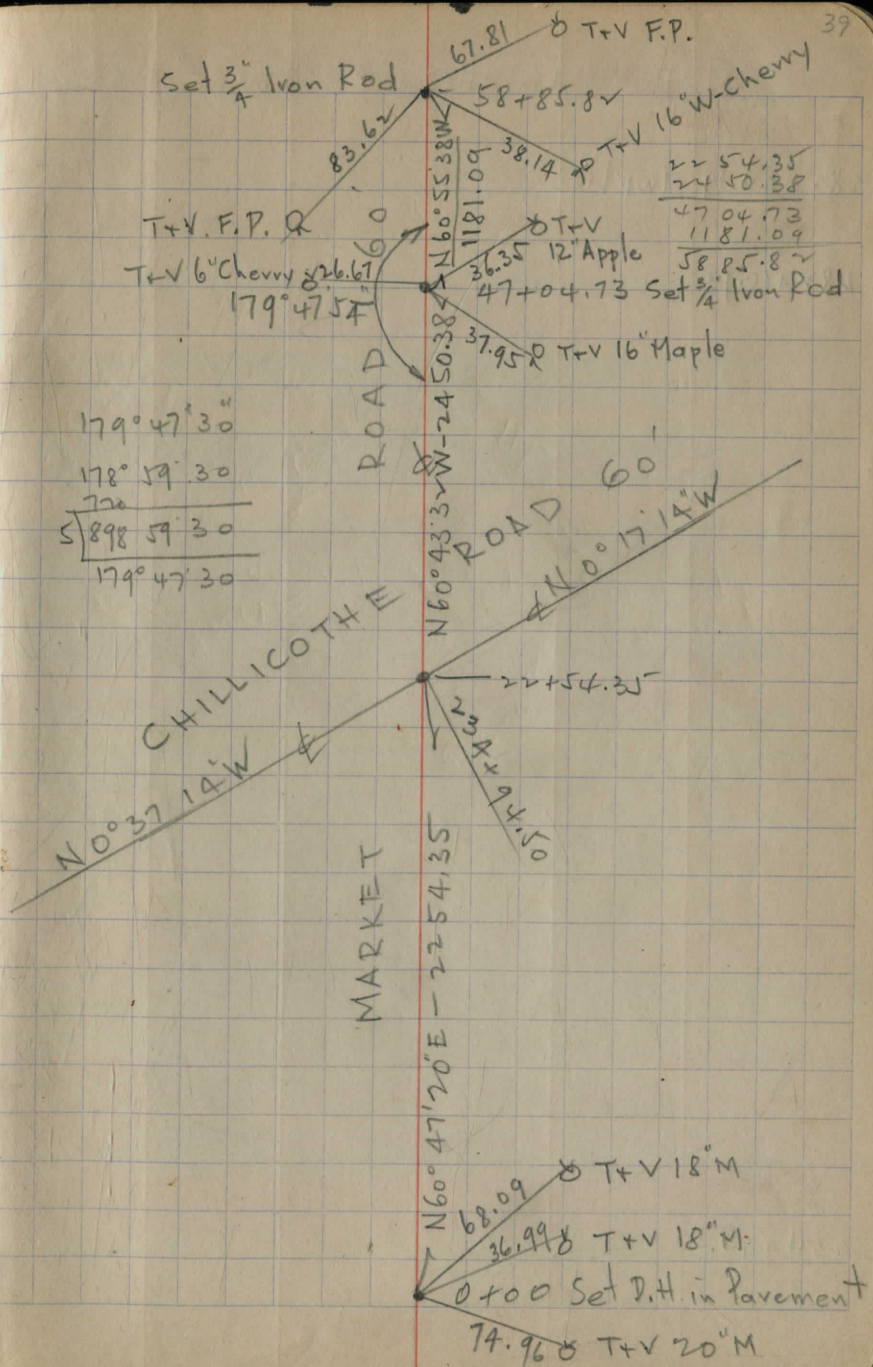 39
67.81 T+V F.P.
Set 3/4" Iron Rod
58+85.82
83.62
38.14 T+V 16" W-Cherry
N60°55'38W
1181.09
2254.35
2450.38
4704.73
1181.09
5885.82
T+V. F.P.
T+V
12" Apple
36.35
T+V 6" Cherry 26.67
179°47'54"
47+04.73 Set 3/4" Iron Rod
37.95 T+V 16" Maple
ROAD 60
N60°43'32W-2450.38
179°47'30"
178°59'30
720
5 898 59'30
179°47'30
CHILLICOTHE ROAD 60'
N0°17'14"W
22+54.35
N0°37'14"W
23A+94.50
MARKET
N60°47'20"E-2254.35
68.09 T+V 18" M
36.99 T+V 18" M.
0+00 Set D.H. in Pavement
74.96 T+V 20" M